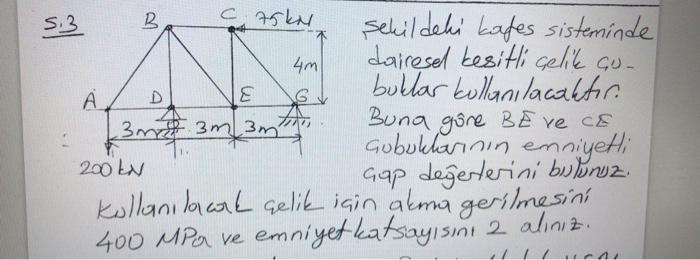 S.3
B
C
75kN
4m
A
D
E
G
3m
3m
3m
200 kN
Şekildeki kafes sisteminde
dairesel kesitli çelik çu-
buklar kullanılacaktır.
Buna göre BE ve CE
Çubuklarının emniyetli
Çap değerlerini bulunuz.
Kullanılacak çelik için akma gerilmesini
400 MPa ve emniyet katsayısını 2 alınız.